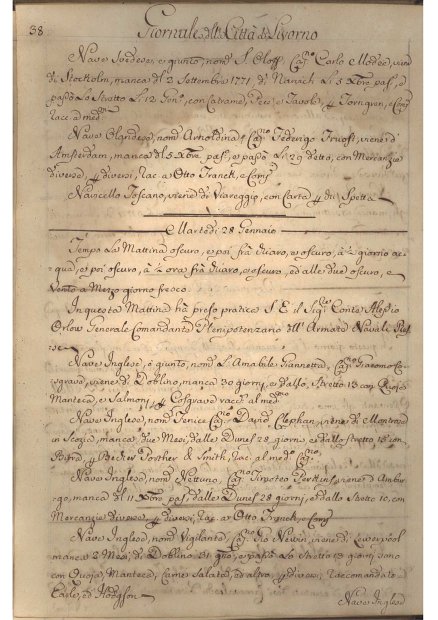 38
Giornale della Città di Livorno
Nave Svedese, è giunto, nom.ª S. Oloff, Cap.no Carlo Moder, viene
di Stockolm, manca dl 2 Settembre 1771 di li 5 Xbre pas.º, e
passò lo Stretto li 12 Genº, con Catrame, Pece e Tavole, p. Tornquen, e Comp.
Rac. a med.
Nave Olandese, nom.ª Cap.no Federigo viene d'
Amsterdam, manca dl 5 Xbre pas.º, e passò li 29 detto, con Mercanzie
diverse, p. diversi, Rac. a Otto Franck, e Comp.
Navicello Toscano, viene di Viareggio, con Carta p. di Spetta
Martedì 28 Gennaio
Tempo la Mattina oscuro, e poi frà chiaro, e oscuro, à ½ giorno ac=
qua, e poi oscuro, à ½ ora frà chiaro, e oscuro, ed alle due oscuro, e
Vento a Mezzo giorno fresco.
In questa Mattina hà preso pratica S. E. il Sig.re Conte Alessio
Orlow Generale Comandante Plenipotenziario dell' Armata Navale Rus=
sa
Nave Inglese, è giunto, nom.ª L'Amabile Giannetta, Cap.no Giacomo Co=
sgrava, viene di Doblino, manca 30 giorni, e dallo Stretto 13 con Quoja
Manteca, e Salmoni, p. Cosgrava rac. al med.mo
Nave Inglese, nom.ª Fenice Cap.no David Clephan, viene di Montross
in Scozia, manca due Mesi, dalle Dunes 28 giorni e dallo Stretto 15 con
p. Becher Porther & Smith, Rac. al med.º Cap.no
Nave Inglese, nom.ª Nettuno, Cap.no Timoteo Perkins, viene d'Ambur=
go, manca dl 11 Xbre pas.º dalle Dunes 28 giorni, e dallo Stretto 10, con
Mercanzie diverse, p. diversi, Rac. a Otto Franck, e Comp.
Nave Inglese, nom.ª Vigilante, Cap.no Gio Newin, viene di Leverpool
manca 2 Mesi, di Doblino 31 giorni, e passò lo Stretto 13 giorni sono
con Quoja, Manteca, Carne Salata, ed altro, p. diversi, Raccomandato
Earle, ed Hodgson
Nave Inglese